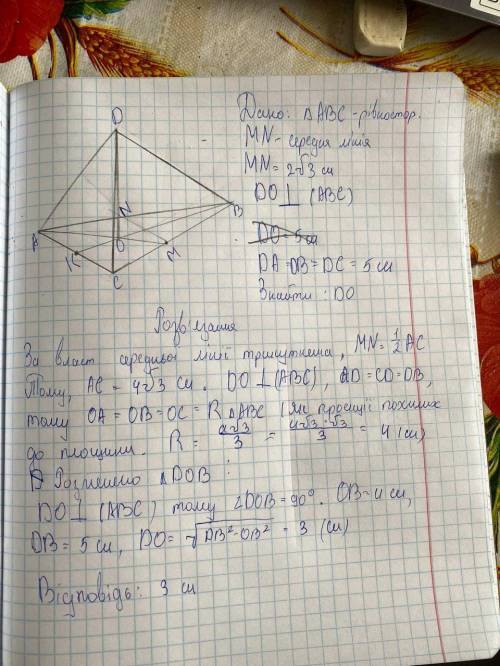 D
Дано: △ABC - рівностор.
MN - середня лінія
MN = 2√3 см
DO⊥ (ABC)
DO = 5 см
DA = DB = DC = 5 см
Знайти: DO
A
N
B
K
O
M
C
Розв'язання
За власт середньої лінії трикутника, MN = ½ AC
Тому, AC = 4√3 см. DO⊥(ABC), AD = CD = DB,
тому OA = OB = OC = R △ABC (Як проекції похилих
до площини. R = a√3/3 = 4√3·√3/3 = 4 (см)
Розглянемо △DOB:
DO⊥ (ABC) тому ∠DOB = 90°. OB = 4 см,
DB = 5 см, DO = √DB²-OB² = 3 (см)
Відповідь: 3 см